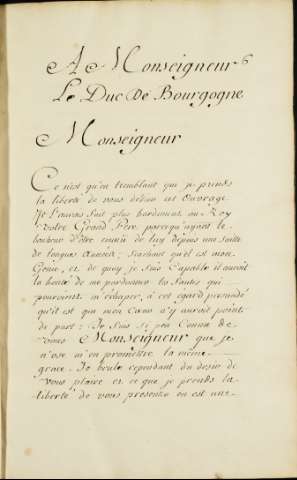 A Monseigneur
Le Duc De Bourgogne
Monseigneur
Ce n'est qu'en tremblant que je prends
la liberté de vous dedier cet Ouvrage.
Je l'aurois fait plus hardiment au Roy
Votre Grand Pere, parcequ'ayant le
bonheur d'être connu de luy depuis une suite
de longues années; Scachant quel est mon
Genie, et de quoy je Suis Capable il auroit
la bonté de me pardonner les fautes qui
pourroient m'échaper, à cet egard persuadé
qu'il est que mon Coeur n'y auroit point
de part: Je Suis Si peu Connu de
Vous Monseigneur que je
n'ose m'en promettre la même
grace. Je brule cependant du desir de
Vous plaire et ce que je prends la
liberté de vous presenter en est une